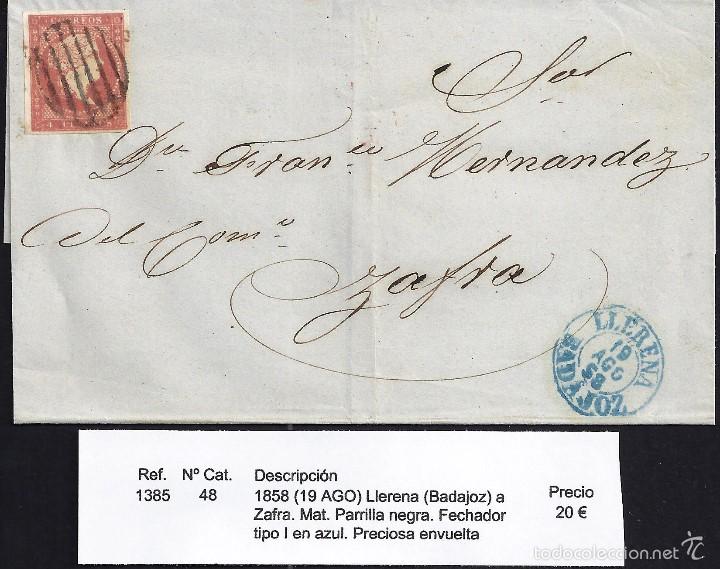 CORREOS
Sor
Dn. Franco. Hernandez
Del Como.
Zafra
LLERENA
19
AGO
58
BADAJOZ
Ref. Nº Cat. Descripción Precio
1385 48 1858 (19 AGO) Llerena (Badajoz) a 20 €
Zafra. Mat. Parrilla negra. Fechador
tipo I en azul. Preciosa envuelta
© todocoleccion.net